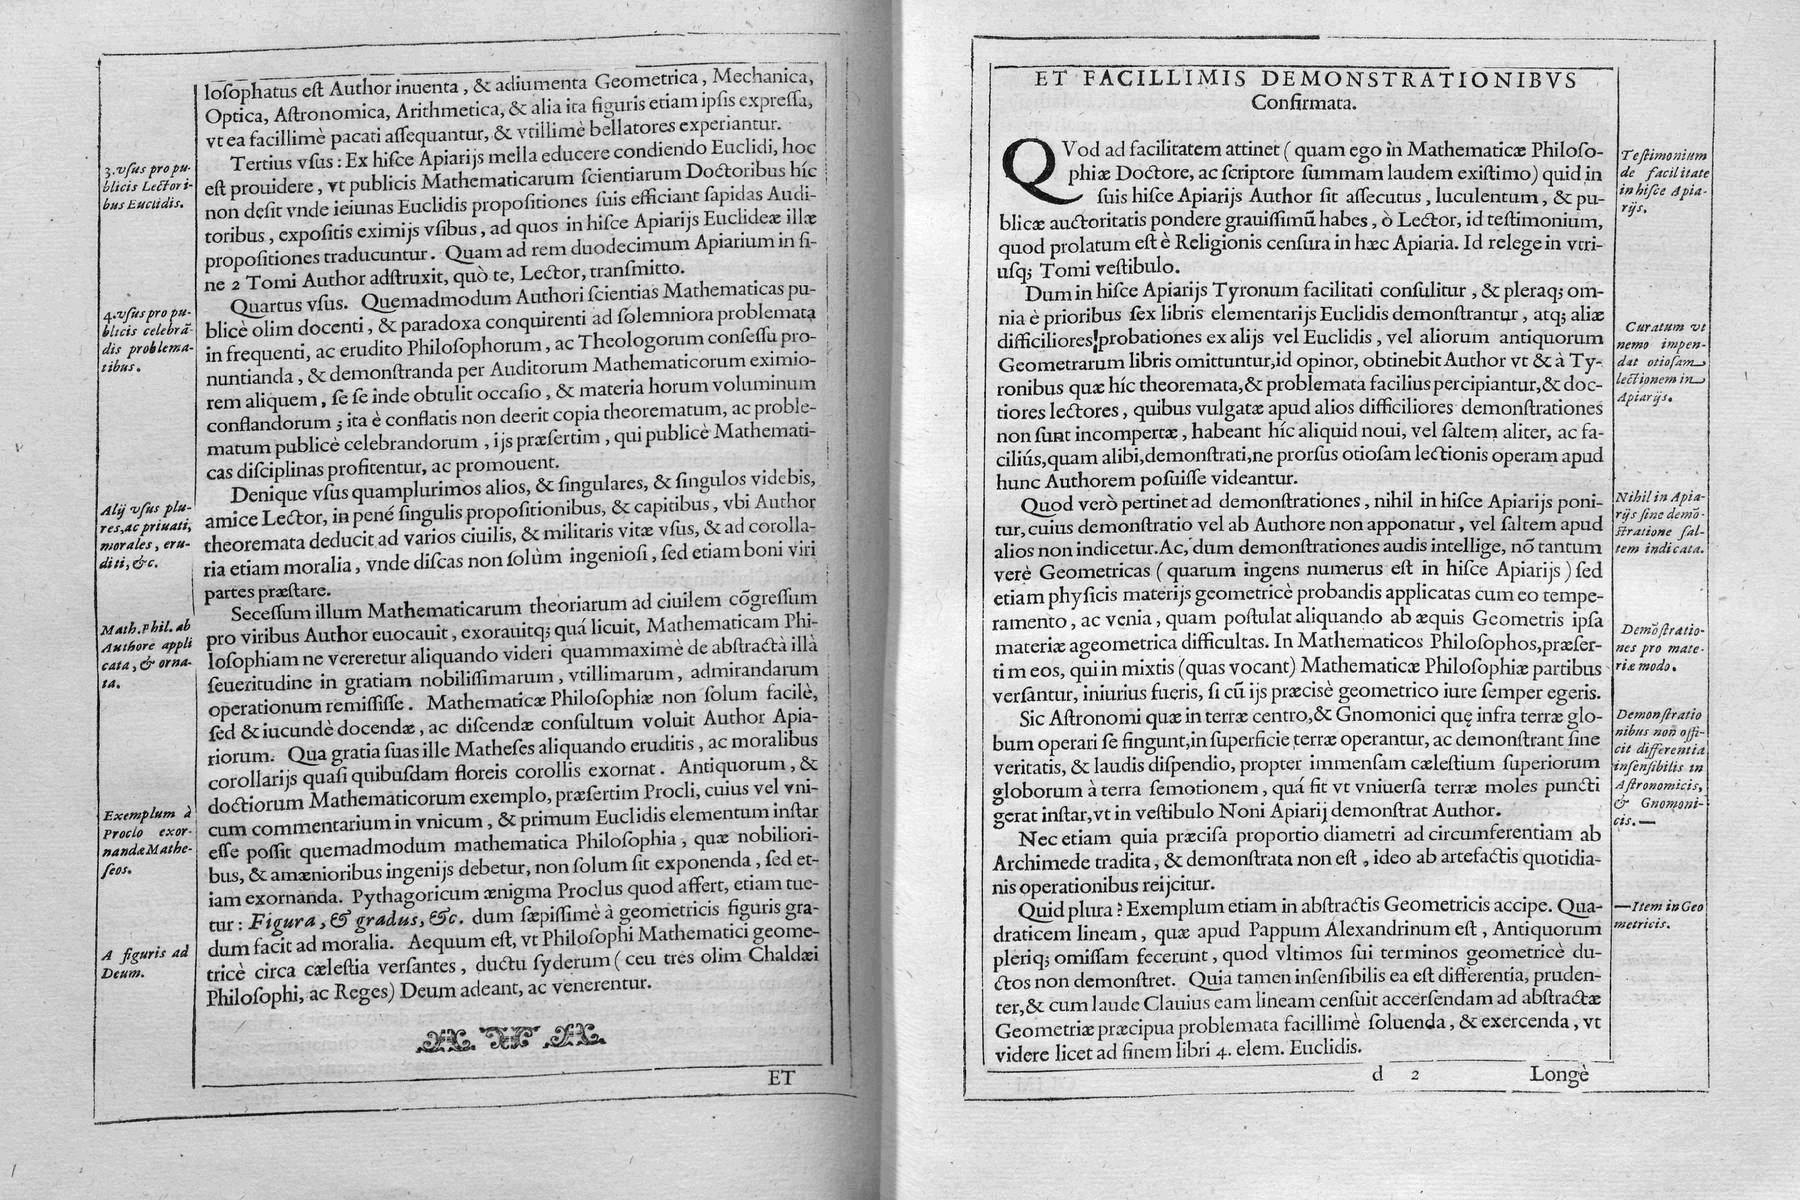 losophatus est Author inuenta, & adiumenta Geometrica, Mechanica,
Optica, Astronomica, Arithmetica, & alia ita figuris etiam ipsis expressa,
vt ea facillimè pacati assequantur, & vtillimè bellatores experiantur.
3. vsus pro pu-
blicis Lectori-
bus Euclidis.
Tertius vsus: Ex hisce Apiarijs mella educere condiendo Euclidi, hoc
est prouidere, vt publicis Mathematicarum scientiarum Doctoribus híc
non desit vnde ieiunas Euclidis propositiones suis efficiant sapidas Audi-
toribus, expositis eximijs vsibus, ad quos in hisce Apiarijs Euclideæ illæ
propositiones traducuntur. Quam ad rem duodecimum Apiarium in fi-
ne 2 Tomi Author adstruxit, quò te, Lector, transmitto.
4. vsus pro pu-
blicis celebrã-
dis problema-
tibus.
Quartus vsus. Quemadmodum Authori scientias Mathematicas pu-
blicè olim docenti, & paradoxa conquirenti ad solemniora problemata
in frequenti, ac erudito Philosophorum, ac Theologorum confessu pro-
nuntianda, & demonstranda per Auditorum Mathematicorum eximio-
rem aliquem, se se inde obtulit occasio, & materia horum voluminum
conflandorum; ita è conflatis non deerit copia theorematum, ac proble-
matum publicè celebrandorum, ijs præsertim, qui publicè Mathemati-
cas disciplinas profitentur, ac promouent.
Alij vsus plu-
res, ac priuati,
morales, eru-
diti, &c.
Denique vsus quamplurimos alios, & singulares, & singulos videbis,
amice Lector, in pené singulis propositionibus, & capitibus, vbi Author
theoremata deducit ad varios ciuilis, & militaris vitæ vsus, & ad corolla-
ria etiam moralia, vnde discas non solùm ingeniosi, sed etiam boni viri
partes præstare.
Math. Phil. ab
Authore appli
cata, & orna-
ta.
Secessum illum Mathematicarum theoriarum ad ciuilem cõgressum
pro viribus Author euocauit, exorauitq; quá licuit, Mathematicam Phi-
losophiam ne vereretur aliquando videri quammaximè de abstractà illà
seueritudine in gratiam nobilissimarum, vtillimarum, admirandarum
operationum remisisse. Mathematicæ Philosophiæ non solum facilè,
sed & iucundè docendæ, ac discendæ consultum voluit Author Apia-
riorum. Qua gratia suas ille Matheses aliquando eruditis, ac moralibus
corollarijs quasi quibusdam floreis corollis exornat. Antiquorum, &
doctiorum Mathematicorum exemplo, præsertim Procli, cuius vel vni-
cum commentarium in vnicum, & primum Euclidis elementum instar
esse possit quemadmodum mathematica Philosophia, quæ nobiliori-
bus, & amænioribus ingenijs debetur, non solum sit exponenda, sed et-
iam exornanda. Pythagoricum ænigma Proclus quod affert, etiam tue-
tur: Figura, & gradus, &c. dum sæpissimè à geometricis figuris gra-
dum facit ad moralia. Aequum est, vt Philosophi Mathematici geome-
tricè circa cælestia versantes, ductu syderum (ceu tres olim Chaldæi
Philosophi, ac Reges) Deum adeant, ac venerentur.
Exemplum à
Proclo exor-
nandæ Mathe-
seos.
A figuris ad
Deum.
ET
ET FACILLIMIS DEMONSTRATIONIBVS
Confirmata.
QVod ad facilitatem attinet (quam ego in Mathematicæ Philoso-
phiæ Doctore, ac scriptore summam laudem existimo) quid in
suis hisce Apiarijs Author sit assecutus, luculentum, & pu-
blicæ auctoritatis pondere grauissimũ habes, ò Lector, id testimonium,
quod prolatum est è Religionis censura in hæc Apiaria. Id relege in vtri-
usq; Tomi vestibulo.
Testimonium
de facilitate
in hisce Apia-
rijs.
Dum in hisce Apiarijs Tyronum facilitati consulitur, & pleraq; om-
nia è prioribus sex libris elementarijs Euclidis demonstrantur, atq; aliæ
difficiliores probationes ex alijs vel Euclidis, vel aliorum antiquorum
Geometrarum libris omittuntur, id opinor, obtinebit Author vt & à Ty-
ronibus quæ híc theoremata, & problemata facilius percipiantur, & doc-
tiores lectores, quibus vulgatæ apud alios difficiliores demonstrationes
non sunt incompertæ, habeant híc aliquid noui, vel saltem aliter, ac fa-
ciliús, quam alibi, demonstrati, ne prorsus otiosam lectionis operam apud
hunc Authorem posuisse videantur.
Curatum vt
nemo impen-
dat otiosam
lectionem in
Apiarijs.
Quod verò pertinet ad demonstrationes, nihil in hisce Apiarijs poni-
tur, cuius demonstratio vel ab Authore non apponatur, vel saltem apud
alios non indicetur. Ac, dum demonstrationes audis intellige, nõ tantum
verè Geometricas (quarum ingens numerus est in hisce Apiarijs) sed
etiam physicis materijs geometricè probandis applicatas cum eo tempe-
ramento, ac venia, quam postulat aliquando ab æquis Geometris ipsa
materiæ ageometrica difficultas. In Mathematicos Philosophos, præser-
tim eos, qui in mixtis (quas vocant) Mathematicæ Philosophiæ partibus
versantur, iniurius fueris, si cũ ijs præcisè geometrico iure semper egeris.
Nihil in Apia-
rijs sine demõ-
stratione sal-
tem indicata.
Demõstratio-
nes pro mate-
riæ modo.
Sic Astronomi quæ in terræ centro, & Gnomonici quę infra terræ glo-
bum operari se fingunt, in superficie terræ operantur, ac demonstrant sine
veritatis, & laudis dispendio, propter immensam cælestium superiorum
globorum à terra semotionem, quá fit vt vniuersa terræ moles puncti
gerat instar, vt in vestibulo Noni Apiarij demonstrat Author.
Demonstratio
nibus non offi-
cit differentia
insensibilis in
Astronomicis,
& Gnomoni-
cis.—
Nec etiam quia præcisa proportio diametri ad circumferentiam ab
Archimede tradita, & demonstrata non est, ideo ab artefactis quotidia-
nis operationibus reijcitur.
Quid plura? Exemplum etiam in abstractis Geometricis accipe. Qua-
draticem lineam, quæ apud Pappum Alexandrinum est, Antiquorum
pleriq; omissam fecerunt, quod vltimos sui terminos geometricè du-
ctos non demonstret. Quia tamen insensibilis ea est differentia, pruden-
ter, & cum laude Clauius eam lineam censuit accersendam ad abstractæ
Geometriæ præcipua problemata facillimè soluenda, & exercenda, vt
videre licet ad finem libri 4. elem. Euclidis.
—Item in Geo
metricis.
d 2
Longè